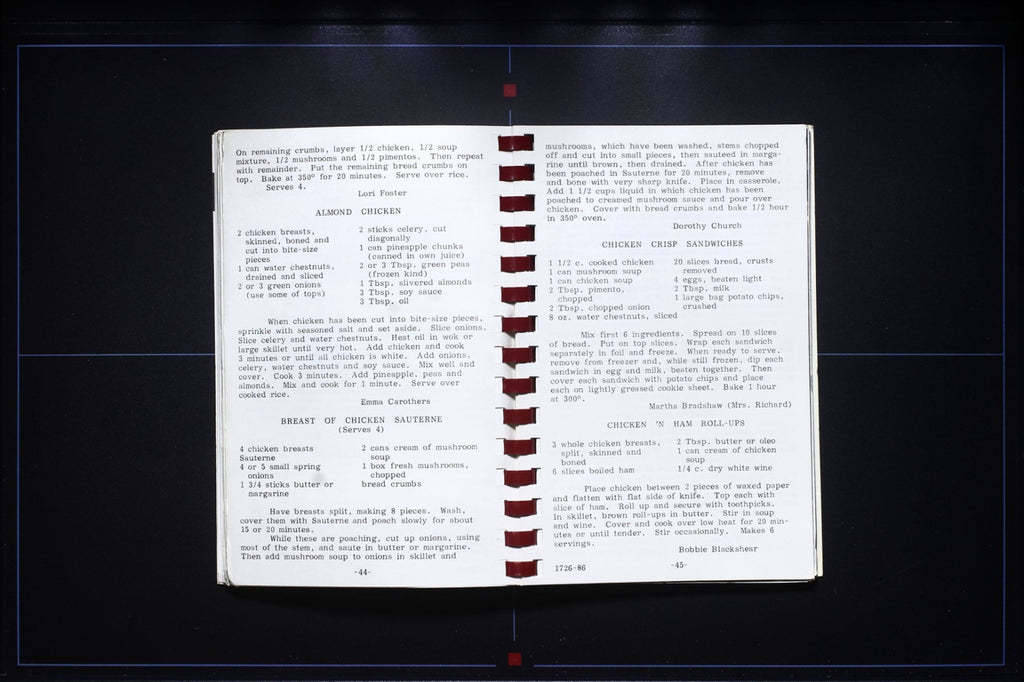 On remaining crumbs, layer 1/2 chicken, 1/2 soup
mixture, 1/2 mushrooms and 1/2 pimentos. Then repeat
with remainder. Put the remaining bread crumbs on
top. Bake at 350° for 20 minutes. Serve over rice.
Serves 4.
Lori Foster
ALMOND CHICKEN
2 chicken breasts,
skinned, boned and
cut into bite-size
pieces
1 can water chestnuts,
drained and sliced
2 or 3 green onions
(use some of tops)
2 sticks celery, cut
diagonally
1 can pineapple chunks
(canned in own juice)
2 or 3 Tbsp. green peas
(frozen kind)
1 Tbsp. slivered almonds
3 Tbsp. soy sauce
3 Tbsp. oil
When chicken has been cut into bite-size pieces,
sprinkle with seasoned salt and set aside. Slice onions.
Slice celery and water chestnuts. Heat oil in wok or
large skillet until very hot. Add chicken and cook
3 minutes or until all chicken is white. Add onions,
celery, water chestnuts and soy sauce. Mix well and
cover. Cook 3 minutes. Add pineapple, peas and
almonds. Mix and cook for 1 minute. Serve over
cooked rice.
Emma Carothers
BREAST OF CHICKEN SAUTERNE
(Serves 4)
4 chicken breasts
Sauterne
4 or 5 small spring
onions
1 3/4 sticks butter or
margarine
2 cans cream of mushroom
soup
1 box fresh mushrooms,
chopped
bread crumbs
Have breasts split, making 8 pieces. Wash,
cover them with Sauterne and poach slowly for about
15 or 20 minutes.
While these are poaching, cut up onions, using
most of the stem, and saute in butter or margarine.
Then add mushroom soup to onions in skillet and
-44-
mushrooms, which have been washed, stems chopped
off and cut into small pieces, then sauteed in marga-
rine until brown, then drained. After chicken has
been poached in Sauterne for 20 minutes, remove
and bone with very sharp knife. Place in casserole.
Add 1 1/2 cups liquid in which chicken has been
poached to creamed mushroom sauce and pour over
chicken. Cover with bread crumbs and bake 1/2 hour
in 350° oven.
Dorothy Church
CHICKEN CRISP SANDWICHES
1 1/2 c. cooked chicken
1 can mushroom soup
1 can chicken soup
2 Tbsp. pimento,
chopped
2 Tbsp. chopped onion
8 oz. water chestnuts, sliced
20 slices bread, crusts
removed
4 eggs, beaten light
2 Tbsp. milk
1 large bag potato chips,
crushed
Mix first 6 ingredients. Spread on 10 slices
of bread. Put on top slices. Wrap each sandwich
separately in foil and freeze. When ready to serve,
remove from freezer and, while still frozen, dip each
sandwich in egg and milk, beaten together. Then
cover each sandwich with potato chips and place
each on lightly greased cookie sheet. Bake 1 hour
at 300°.
Martha Bradshaw (Mrs. Richard)
CHICKEN 'N HAM ROLL-UPS
3 whole chicken breasts,
split, skinned and
boned
6 slices boiled ham
2 Tbsp. butter or oleo
1 can cream of chicken
soup
1/4 c. dry white wine
Place chicken between 2 pieces of waxed paper
and flatten with flat side of knife. Top each with
slice of ham. Roll up and secure with toothpicks.
In skillet, brown roll-ups in butter. Stir in soup
and wine. Cover and cook over low heat for 20 min-
utes or until tender. Stir occasionally. Makes 6
servings.
Bobbie Blackshear
1726-86
-45-